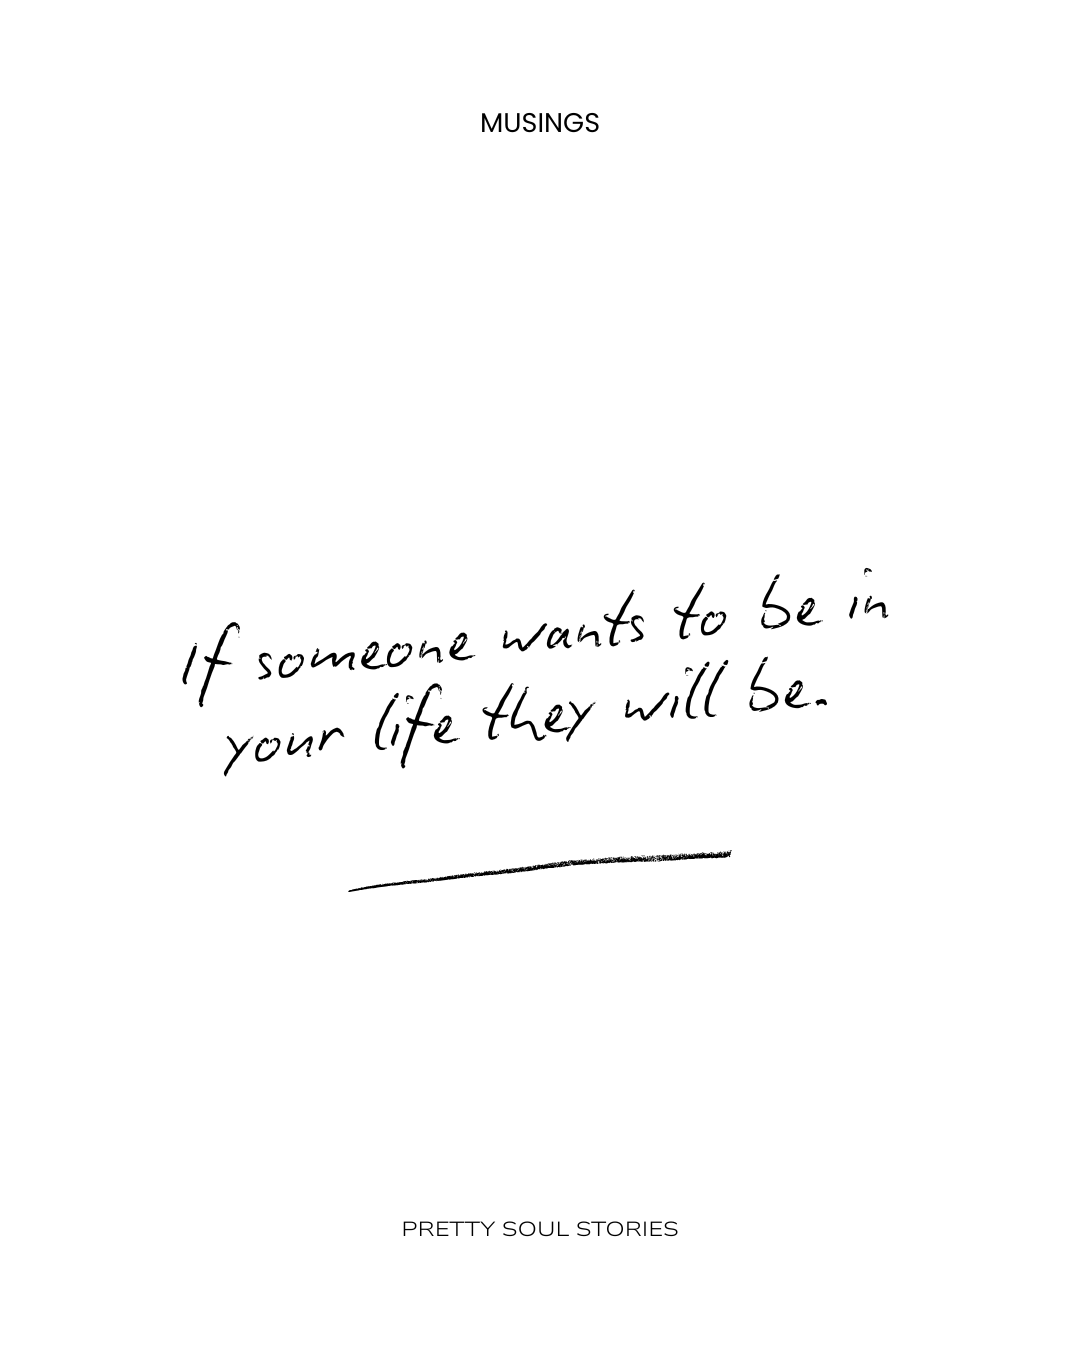 MUSINGS
If someone wants to be in
your life they will be.
PRETTY SOUL STORIES